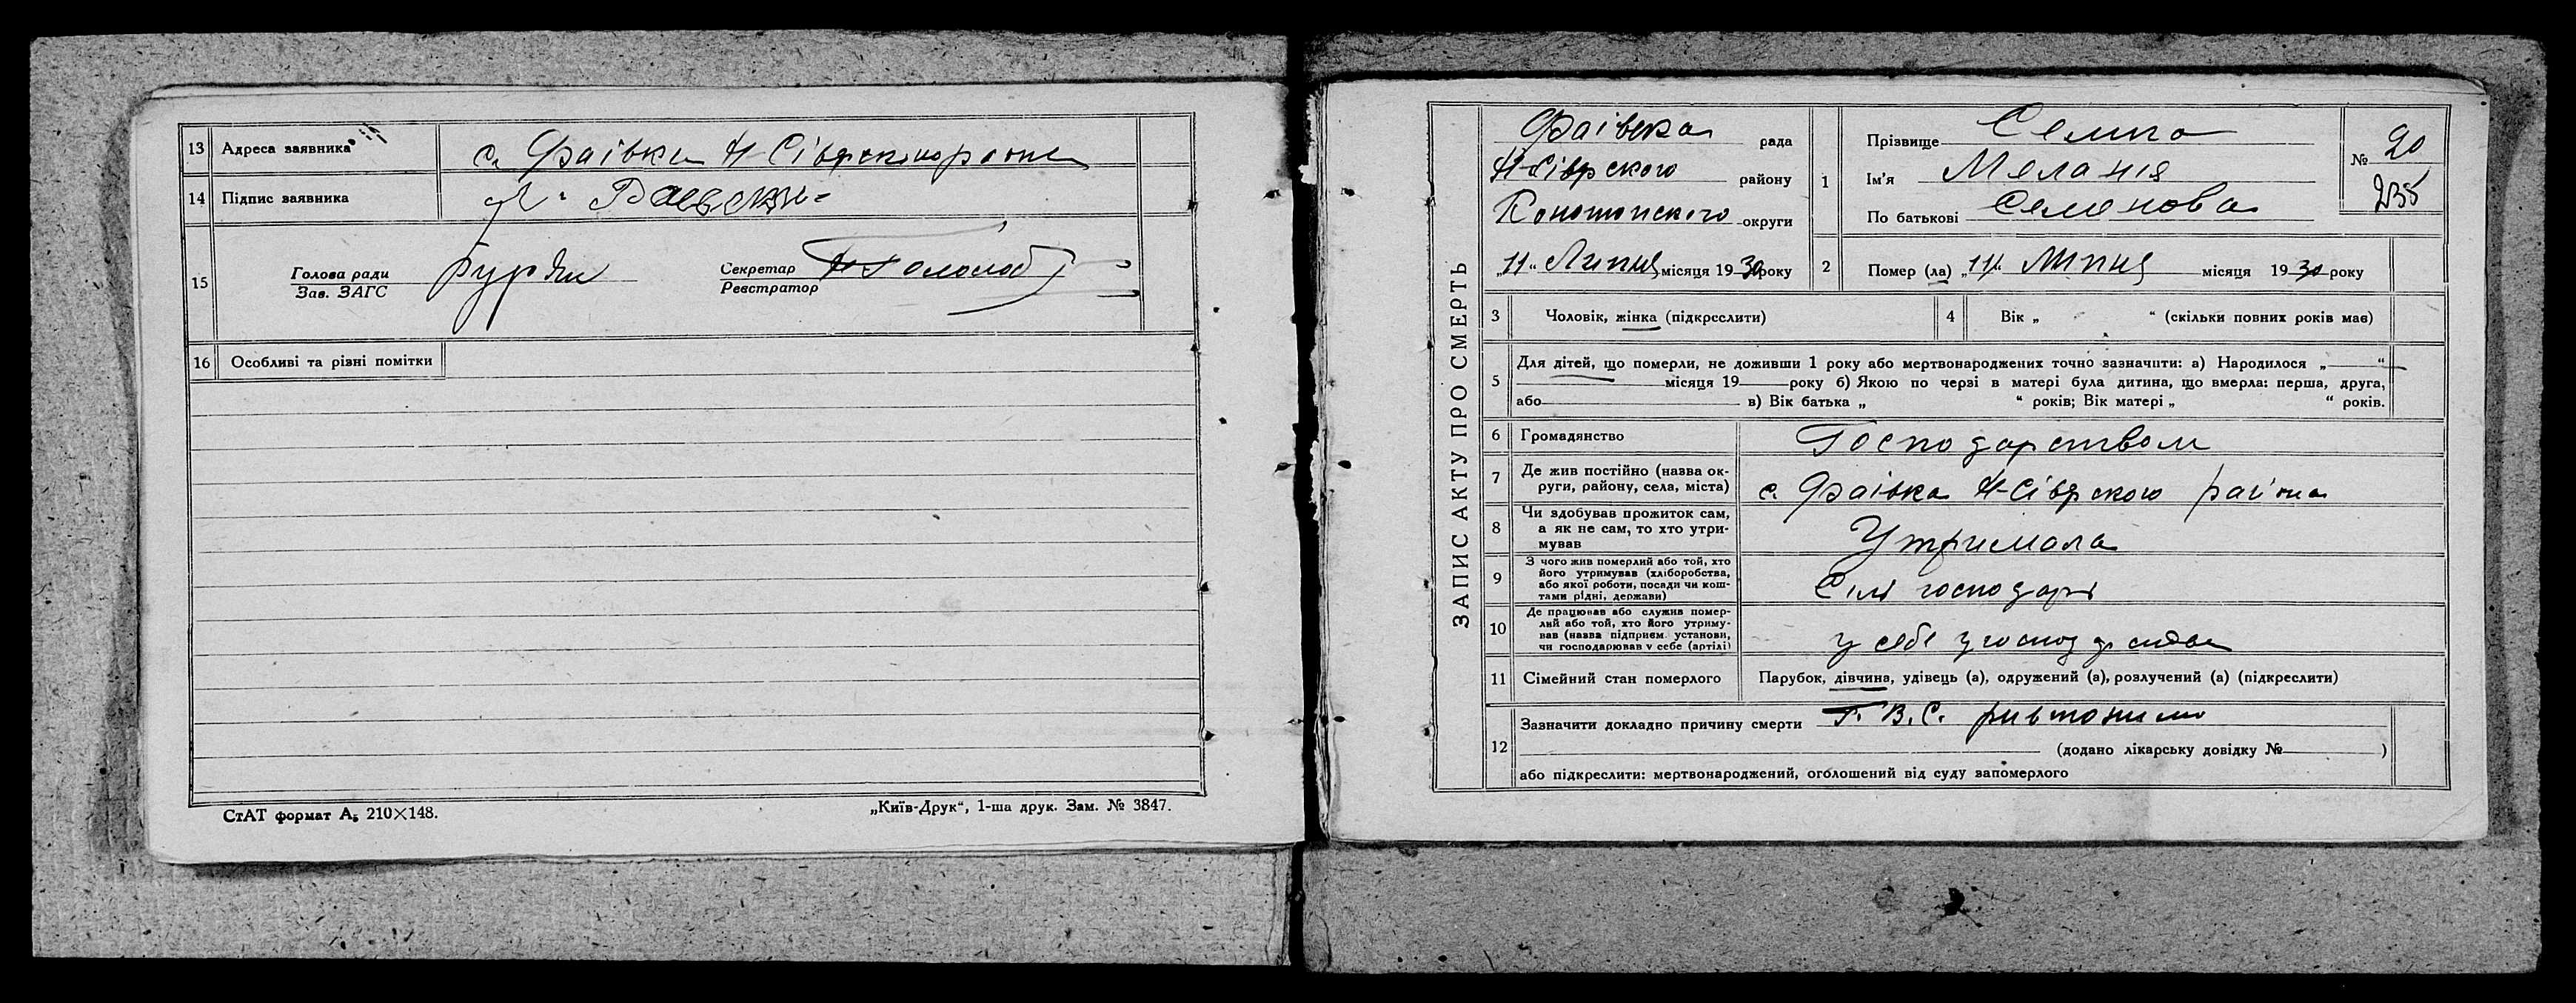 13 Адреса заявника с. Фаївка Н-Сіврского района
14 Підпис заявника
15 Голова ради
Зав. ЗАГС
Секретар
Реєстратор
16 Особливі та різні помітки
СтАТ формат А5 210×148.
„Київ-Друк“, 1-ша друк. Зам. № 3847.
ЗАПИС АКТУ ПРО СМЕРТЬ
Фаївска рада
Н-Сіврского району
Конотопского округи
„11“ Липня місяця 1930 року
1 Прізвище
Ім'я Меланія
По батькові Семенова
№ 20
235
2 Помер (ла) „11“ Липня місяця 1930 року
3 Чоловік, жінка (підкреслити)
4 Вік „ “ (скільки повних років має)
5 Для дітей, що померли, не доживши 1 року або мертвонароджених точно зазначити: а) Народилося „ “
місяця 19 року б) Якою по черзі в матері була дитина, що вмерла: перша, друга,
або в) Вік батька „ “ років; Вік матері „ “ років.
6 Громадянство Господарством
7 Де жив постійно (назва ок-
руги, району, села, міста) с. Фаівка Н-Сіврского района
8 Чи здобував прожиток сам,
а як не сам, то хто утри-
мував Утримала
9 З чого жив померлий або той, хто
його утримував (хліборобства,
або якої роботи, посади чи кош-
тами рідні, держави) Сіл господарі
10 Де працював або служив помер-
лий або той, хто його утриму-
вав (назва підприєм. установи,
чи господарював у себе (артілі) у себе у господарстве
11 Сімейний стан померлого Парубок, дівчина, удівець (а), одружений (а), розлучений (а) (підкреслити)
12 Зазначити докладно причину смерти
(додано лікарську довідку № )
або підкреслити: мертвонароджений, оголошений від суду запомерлого